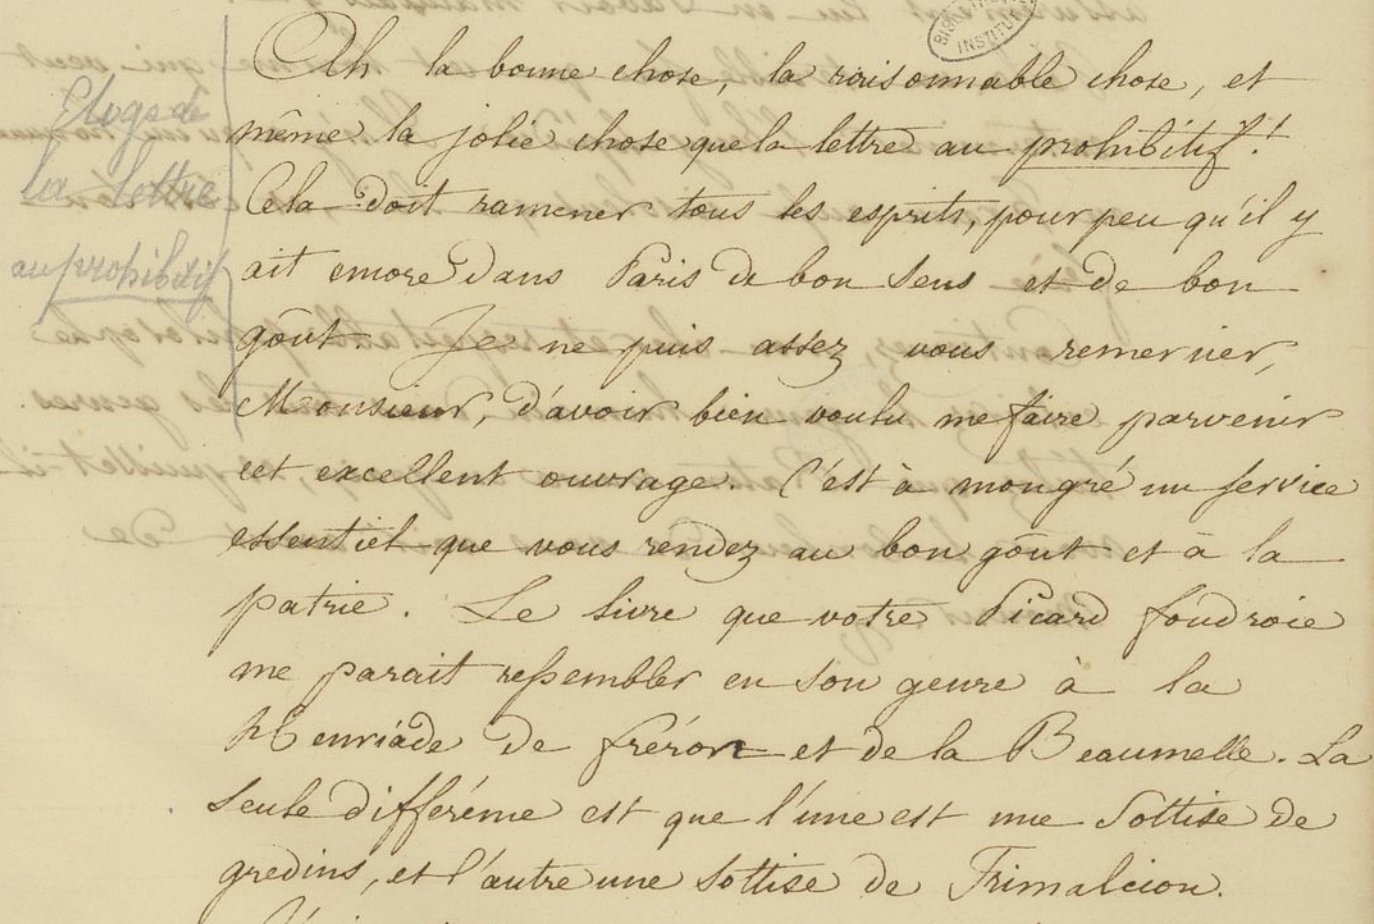 BIBLIOTHÈQUE
INSTITUT
Eloge de
la lettre
au prohibitif
Ah la bonne chose, la raisonnable chose, et
même la jolie chose que la lettre au prohibitif!
Cela doit ramener tous les esprits, pour peu qu'il y
ait encore dans Paris de bon sens et de bon
goût. Je ne puis assez vous remercier,
Monsieur, d'avoir bien voulu me faire parvenir
cet excellent ouvrage. C'est à mon gré un service
essentiel que vous rendez au bon goût et à la
patrie. Le livre que votre Picard foudroie
me parait ressembler en son genre à la
Henriade de fréron et de la Beaumelle. La
seule différence est que l'une est une sottise de
gredins, et l'autre une sottise de Trimalcion.